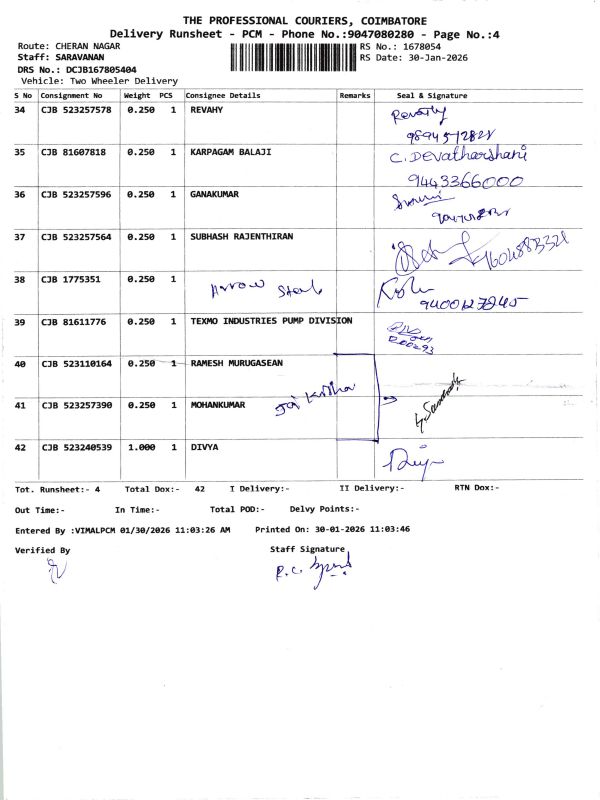 THE PROFESSIONAL COURIERS, COIMBATORE
Delivery Runsheet - PCM - Phone No.:9047080280 - Page No.:4
Route: CHERAN NAGAR RS No.: 1678054
Staff: SARAVANAN RS Date: 30-Jan-2026
DRS No.: DCJB167805404
Vehicle: Two Wheeler Delivery
S No Consignment No Weight PCS Consignee Details Remarks Seal & Signature
34 CJB 523257578 0.250 1 REVAHY Revathy
35 CJB 81607818 0.250 1 KARPAGAM BALAJI C. Devatharshani
9443366000
36 CJB 523257596 0.250 1 GANAKUMAR
37 CJB 523257564 0.250 1 SUBHASH RAJENTHIRAN
38 CJB 1775351 0.250 1 Arrow
39 CJB 81611776 0.250 1 TEXMO INDUSTRIES PUMP DIVISION
40 CJB 523110164 0.250 1 RAMESH MURUGASEAN
41 CJB 523257390 0.250 1 MOHANKUMAR
42 CJB 523240539 1.000 1 DIVYA
Tot. Runsheet:- 4 Total Dox:- 42 I Delivery:- II Delivery:- RTN Dox:-
Out Time:- In Time:- Total POD:- Delvy Points:-
Entered By :VIMALPCM 01/30/2026 11:03:26 AM Printed On: 30-01-2026 11:03:46
Verified By Staff Signature